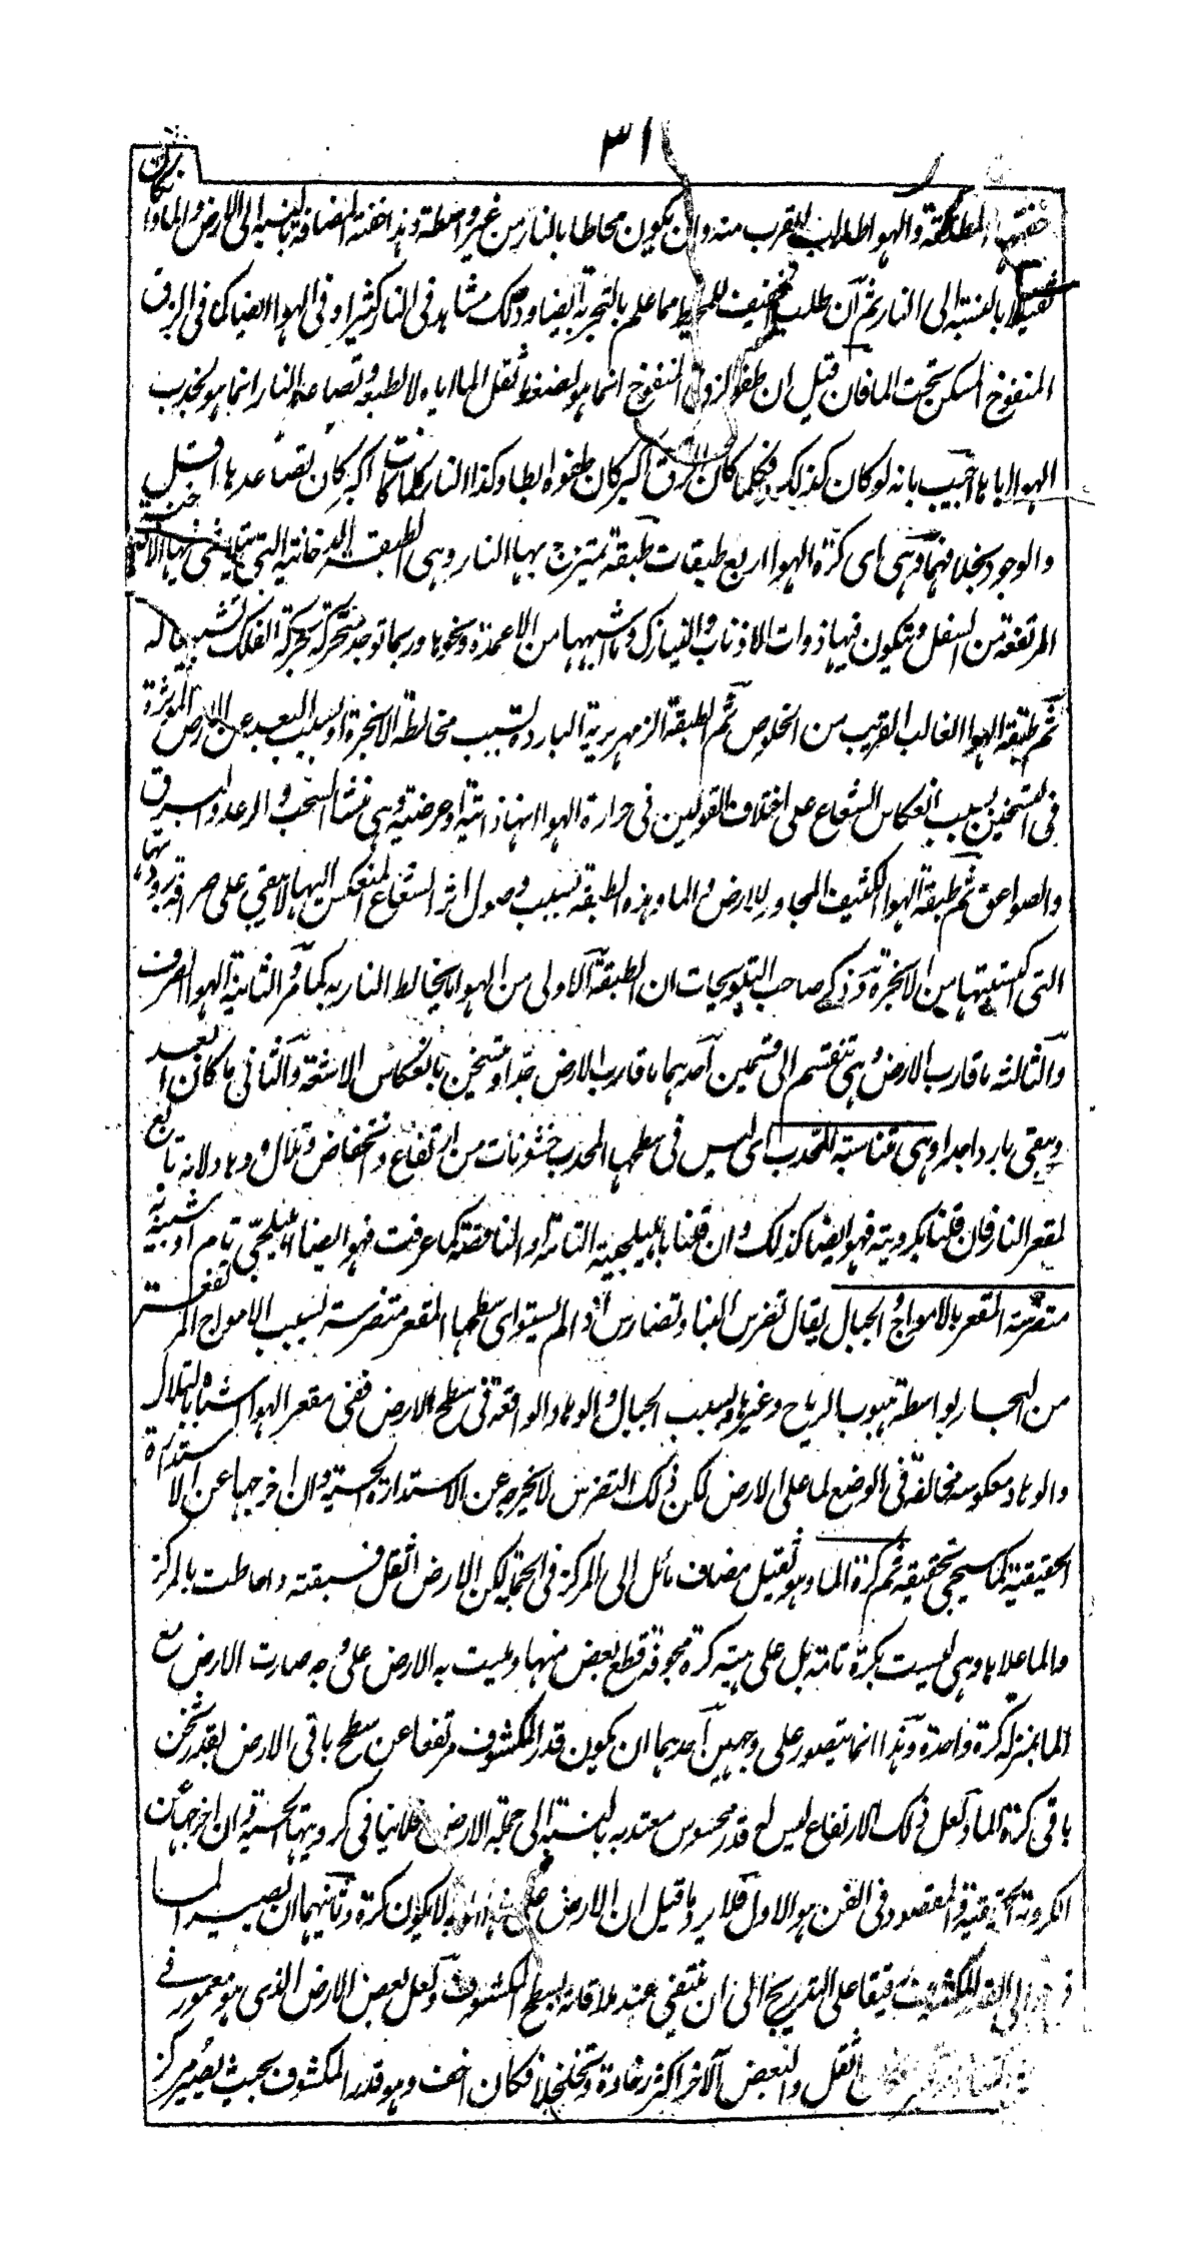 ٣١
خفتها المطلقة والهوا طالب للقرب منه وان يكون محاطا بالنار من غير واسطة وهذا خفته المضافة بالنسبة الى الارض والماء وان كان
ثقيلا بالنسبة الى النار ثم ان طلب الخفيف للمحيط مما علم بالتجربة ايضا وذلك مشاهد فى النار كثيرا وفى الهوا ايضا كما فى الزق
المنفوخ المسكن تحت الما فان قيل ان طفو الزق المنفوخ انما هو لضغط ثقل الما اياه لا لطبعه وتصاعد النار انما هو لجذب
الهوا اياها اجيب بانه لو كان كذلك فكلما كان الزق اكبر كان طفوه ابطا وكذا النار كلما كانت اكبر كان تصاعدها اقل
والوجود بخلافهما وهى اى كرة الهوا اربع طبقات طبقة تمتزج بها النار وهى الطبقة الدخانية التى تتلاشى فيها الادخنة
المرتفعة من السفل ويتكون فيها ذوات الاذناب والنيازك وما شبهها من الاعمدة ونحوها وربما توجد متحركة بحركة الفلك تشييعا له
ثم طبقة الهوا الغالب القريب من الخلوص ثم الطبقة الزمهريرية الباردة بسبب مخالطة الابخرة او بسبب البعد عن الارض المؤثرة
فى التسخين بسبب انعكاس الشعاع على اختلاف القولين فى حرارة الهوا انها ذاتية او عرضية وهى منشأ السحب والرعد والبرق
والصواعق ثم طبقة الهوا الكثيف المجاور للارض والما وهذه الطبقة بسبب وصول اثر الشعاع المنعكس اليها لا تبقى على صرافة برودتها
التى اكتسبتها من الابخرة وذكر صاحب التلويحات ان الطبقة الاولى من الهوا ما يخالط النارية كما مر والثانية الهوا الصرف
والثالثة ما قارب الارض وهى تنقسم الى قسمين احدهما ما قارب الارض جدا وتسخن بانعكاس الاشعة والثانى ما كان ابعد
ويبقى باردا جدا وهى متناسبة المحدب اى ليس فى سطحها المحدب خشونات من ارتفاع وانخفاض وتلال ووهاد لانه تابع
لمقعر النار فان قلنا بكرويته فهو ايضا كذلك وان قلنا باهليلجيته التامة او الناقصة كما عرفت فهو ايضا اهليلجى تام او شبيه به
متضرسة المقعر بالامواج والجبال يقال تضرس البنا وتضارس اذا لم يستو اى سطحها المقعر متضرسة بسبب الامواج المرتفعة
من البحار بواسطة هبوب الرياح وغيرها وبسبب الجبال والوهاد الواقعة فى سطح الارض ففى مقعر الهوا اشباه التلال
والوهاد معكوسة مخالفة فى الوضع لما على الارض لكن ذلك التضرس لا يخرجه عن الاستدارة الحسية وان اخرجها عن الاستدارة
الحقيقية كما سيجى تحقيقه ثم كرة الما وهو ثقيل مضاف مائل الى المركز فى الجملة لكن الارض اثقل فسبقته واحاطت بالمركز
والما علاها وهى ليست بكرة تامة بل على هيئة كرة مجوفة قطع بعض منها وملئت به الارض على وجه صارت الارض مع
الما بمنزلة كرة واحدة وهذا انما يتصور على وجهين احدهما ان يكون قدر المكشوف مرتفعا عن سطح باقى الارض بقدر ثخن
باقى كرة الما ولعل ذلك الارتفاع ليس له قدر محسوس معتد به بالنسبة الى جملة الارض فلا ينافى كرويتها الحسية وان اخرجها عن
الكروية الحقيقية والمقصود فى الفن هو الاول فلا يرد ما قيل ان الارض على هذا لا يكون كرة وثانيهما ان يصير الما
القدر المكشوف رقيقا على التدريج الى ان ينتفى عند ملاقاته لسطح المكشوف ولعل بعض الارض الذى هو مغمور فى
اثقل والبعض الاخر اكثر رخاوة وتخلخلا فكان اخف وهو قدر المكشوف بحيث يصير مركز